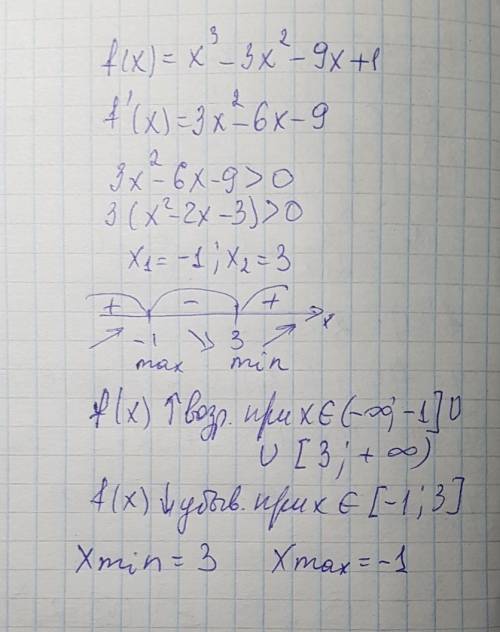 f(x) = x³ - 3x² - 9x + 1
f'(x) = 3x² - 6x - 9
3x² - 6x - 9 > 0
3(x² - 2x - 3) > 0
x₁ = -1; x₂ = 3
+ - + x
-1 3
max min
f(x) ↑ возр. при x ∈ (-∞; -1] ∪
∪ [3; +∞)
f(x) ↓ убыв. при x ∈ [-1; 3]
Xmin = 3 Xmax = -1